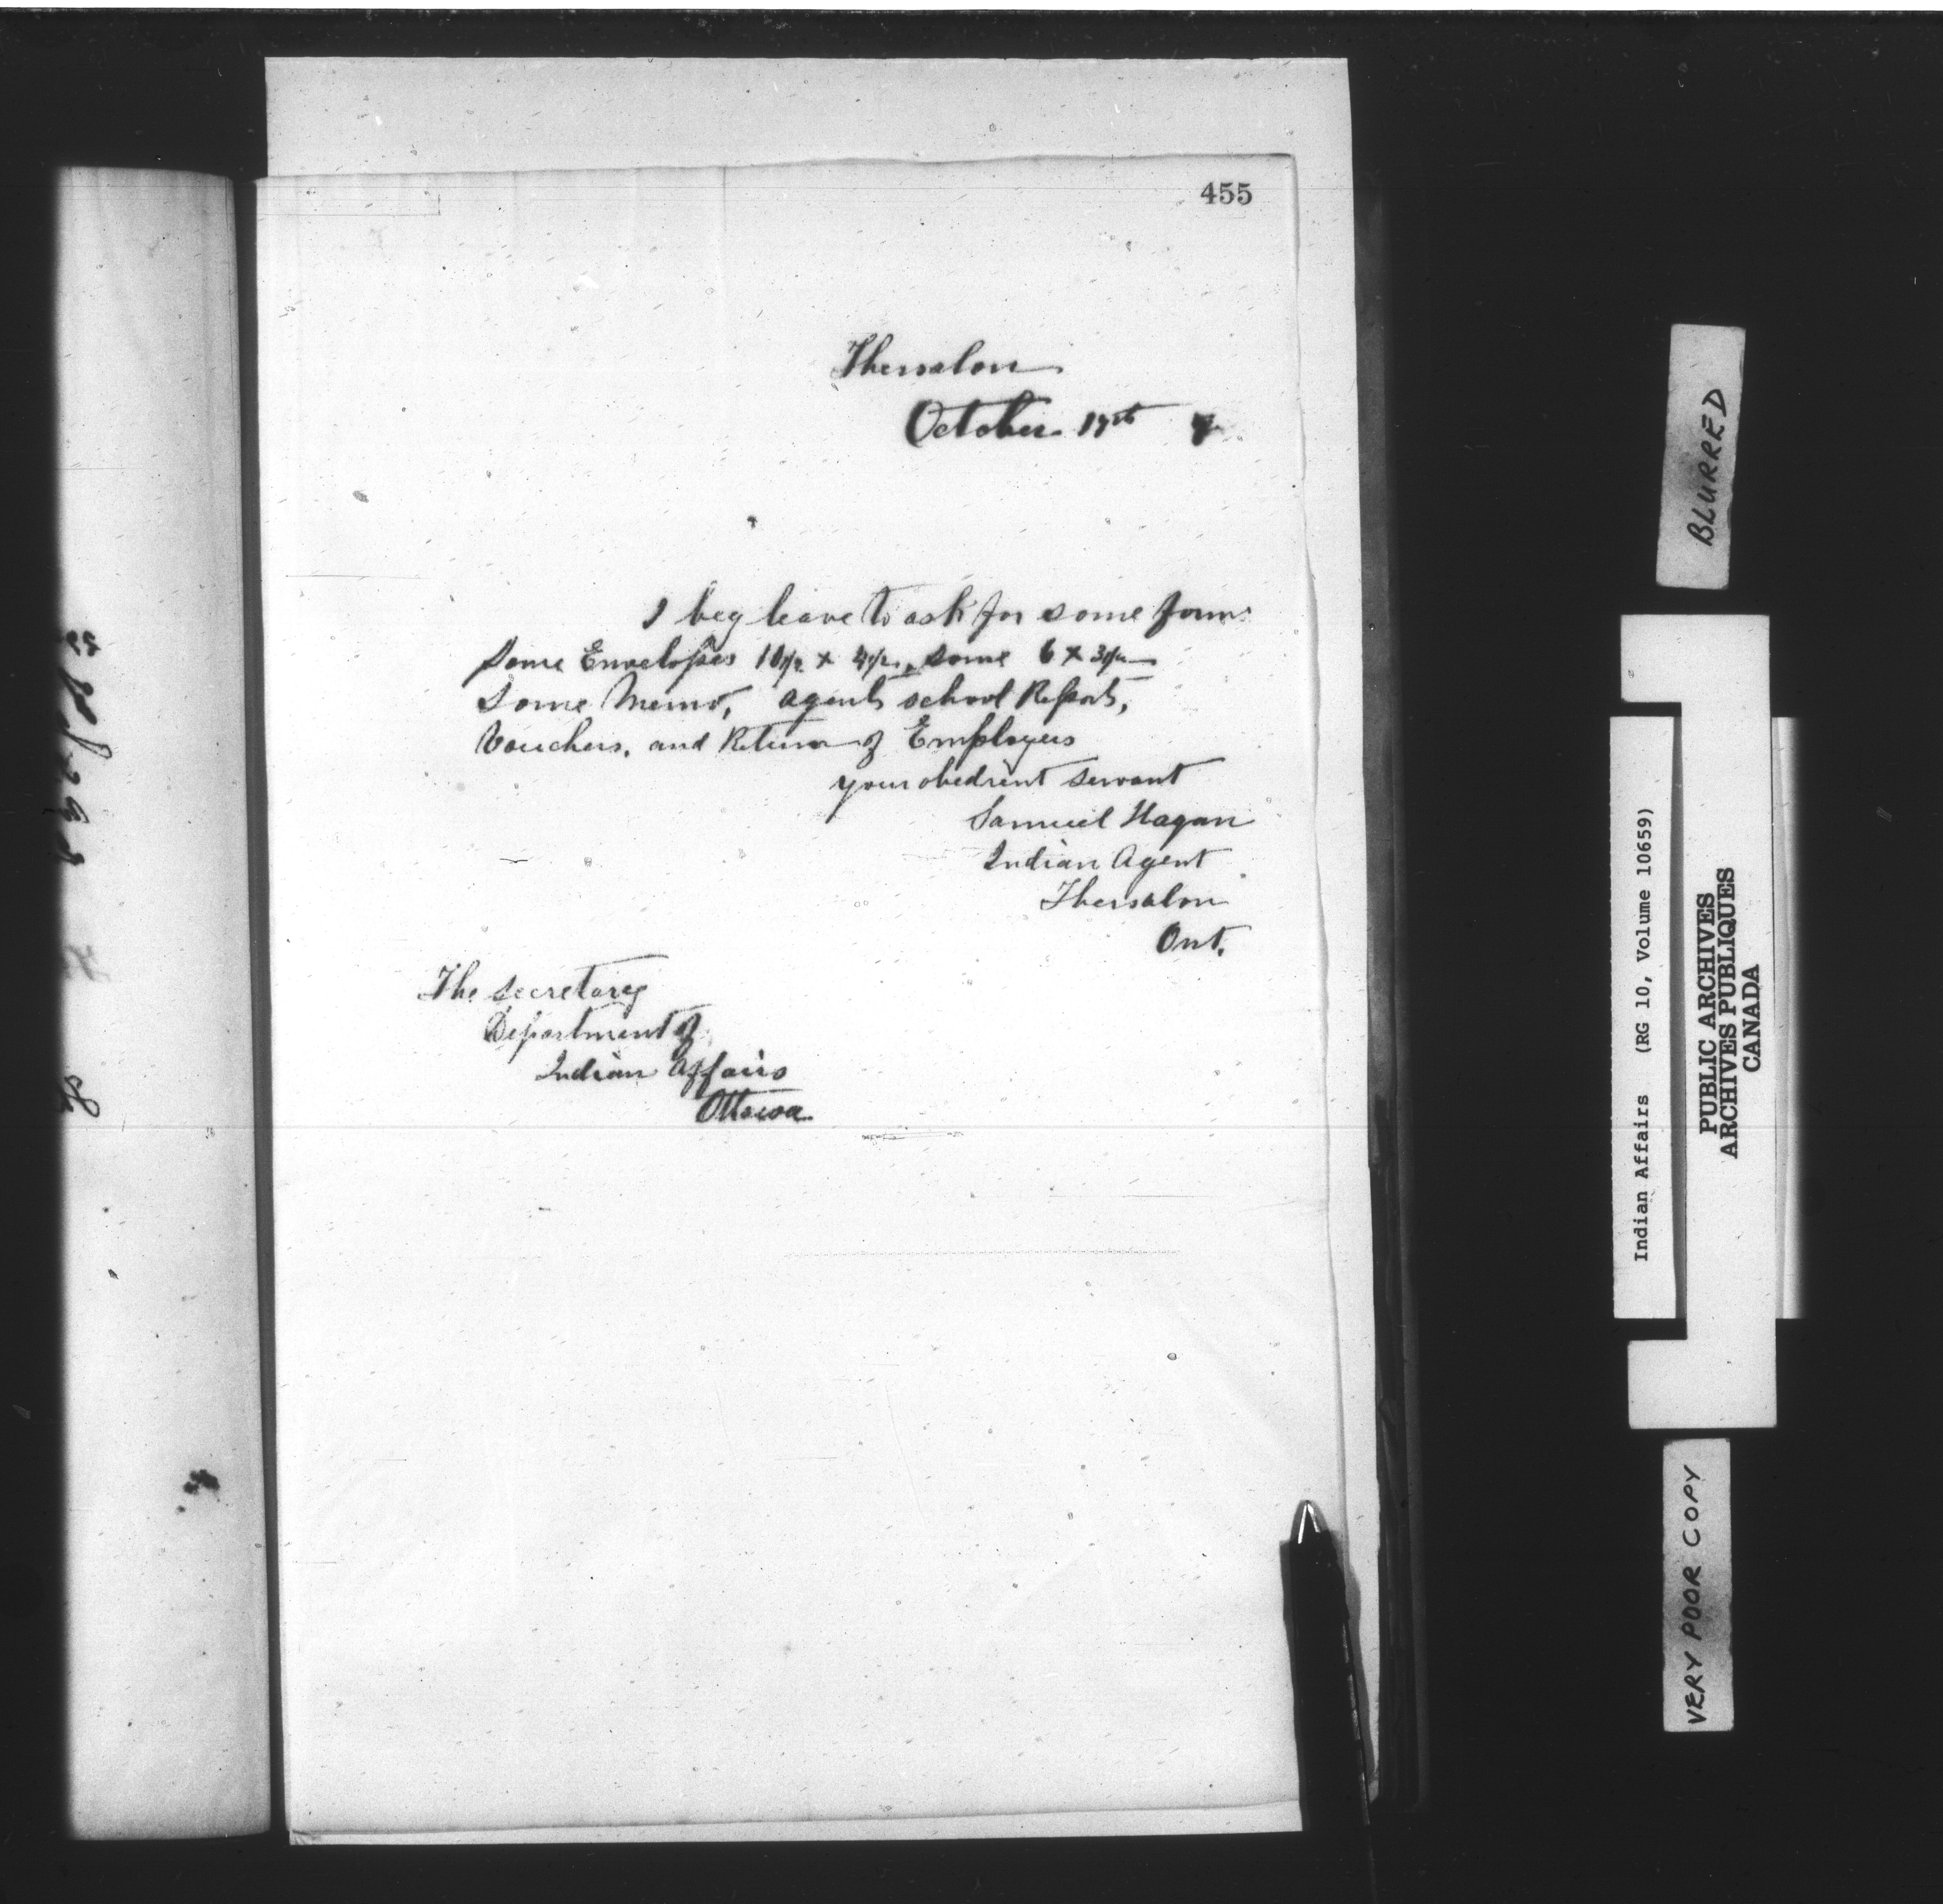 455
Thessalon
October 17th 7
I beg leave to ask for some forms
some Envelopes 10½ x 4½, some 6 x 3½
Some Memo, agents school Reports,
Vouchers, and Return of Employees
your obedient servant
Samuel Hagan
Indian Agent
Thessalon
Ont.
The secretary
Department of
Indian Affairs
Ottawa
BLURRED
Indian Affairs (RG 10, Volume 10659)
PUBLIC ARCHIVES
ARCHIVES PUBLIQUES
CANADA
VERY POOR COPY